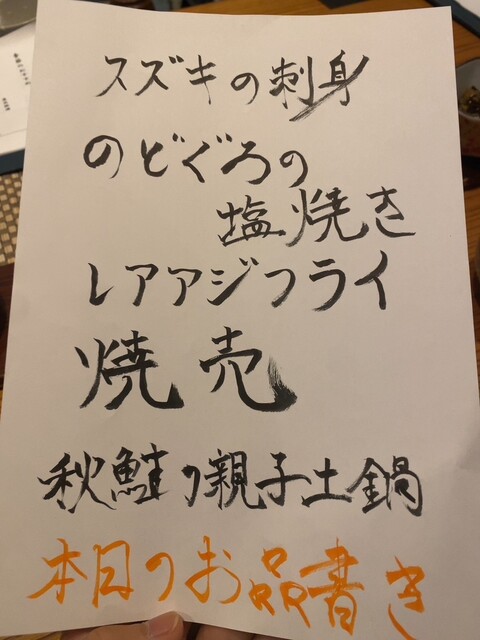 スズキの刺身
のどぐろの
塩焼き
レアアジフライ
焼売
秋鮭の親子土鍋
本日のお品書き